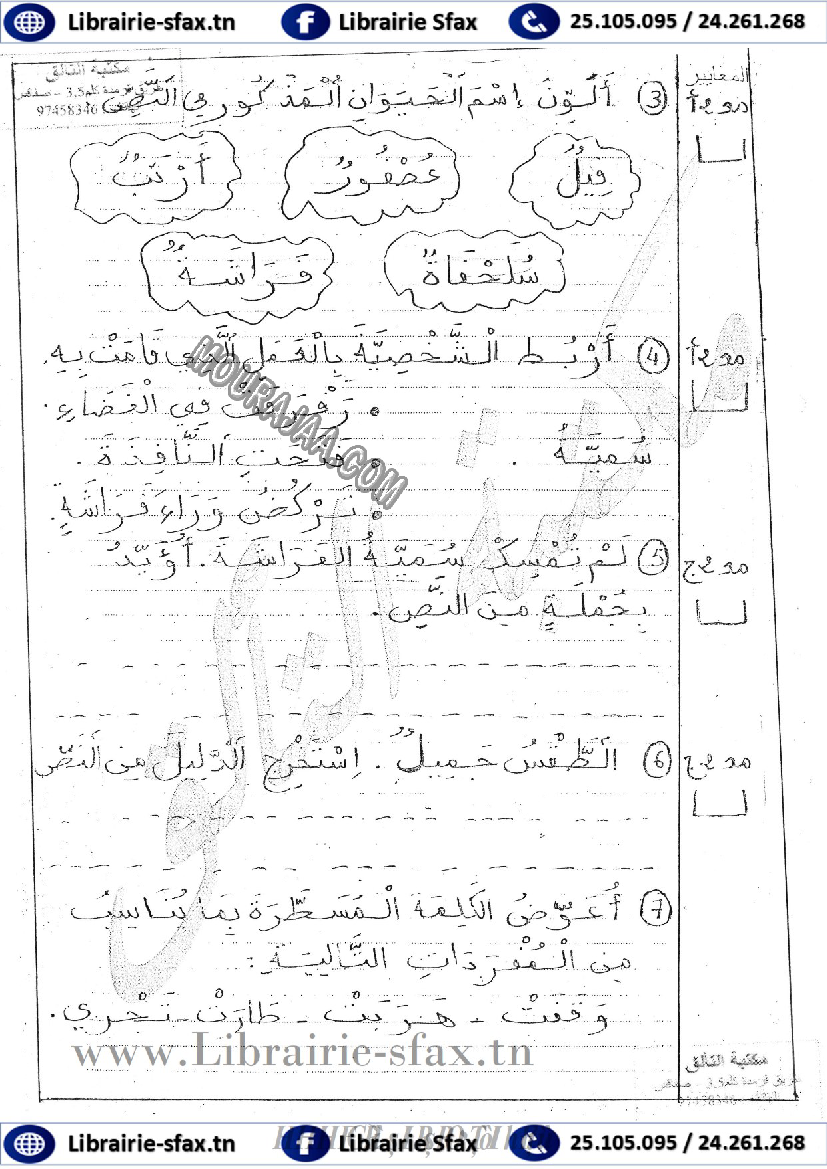 Librairie-sfax.tn Librairie Sfax 25.105.095 / 24.261.268
مكتبة التالق
97458346
المعايير
③ أُلَوِّنُ إِسْمَ الْحَيَوَانِ الْمَذْكُورِ فِي النَّصِّ
مع2أ
فِيلٌ عُصْفُورٌ أَرْنَبٌ
سُلَحْفَاةٌ فَرَاشَةٌ
④ أَرْبُط الْشَّخْصِيَّةَ بِالْعَمَلِ الَّذِي قَامَتْ بِهِ.
مع2أ
• رَفْرَفَتْ فِي الْفَضَاءِ.
سُمَيَّةُ . • فَتَحَتِ النَّافِذَةَ.
• تَرْكُضُ وَرَاءَ فَرَاشَةٍ.
⑤ لَمْ تُمْسِكْ سُمَيَّةُ الفَرَاشَةَ. أُؤَيِّدُ
مع2ج
بِجُمْلَةٍ مِنَ النَّصِّ.
⑥ الطَّقْسُ جَمِيلٌ. اِسْتَخْرِجِ الدَّلِيلَ مِنَ النَّصِّ
مع2ج
⑦ أُعَوِّضُ الكَلِمَةَ الْمُسَطَّرَةَ بِمَا يُنَاسِبُ
مِنَ الْمُفْرَدَاتِ التَّالِيَةِ:
وَقَفَتْ - هَرَبَتْ - طَارَتْ - تَجْرِي.
MOURAJAA.COM
www.Librairie-sfax.tn
مكتبة التالق
Librairie-sfax.tn Librairie Sfax 25.105.095 / 24.261.268